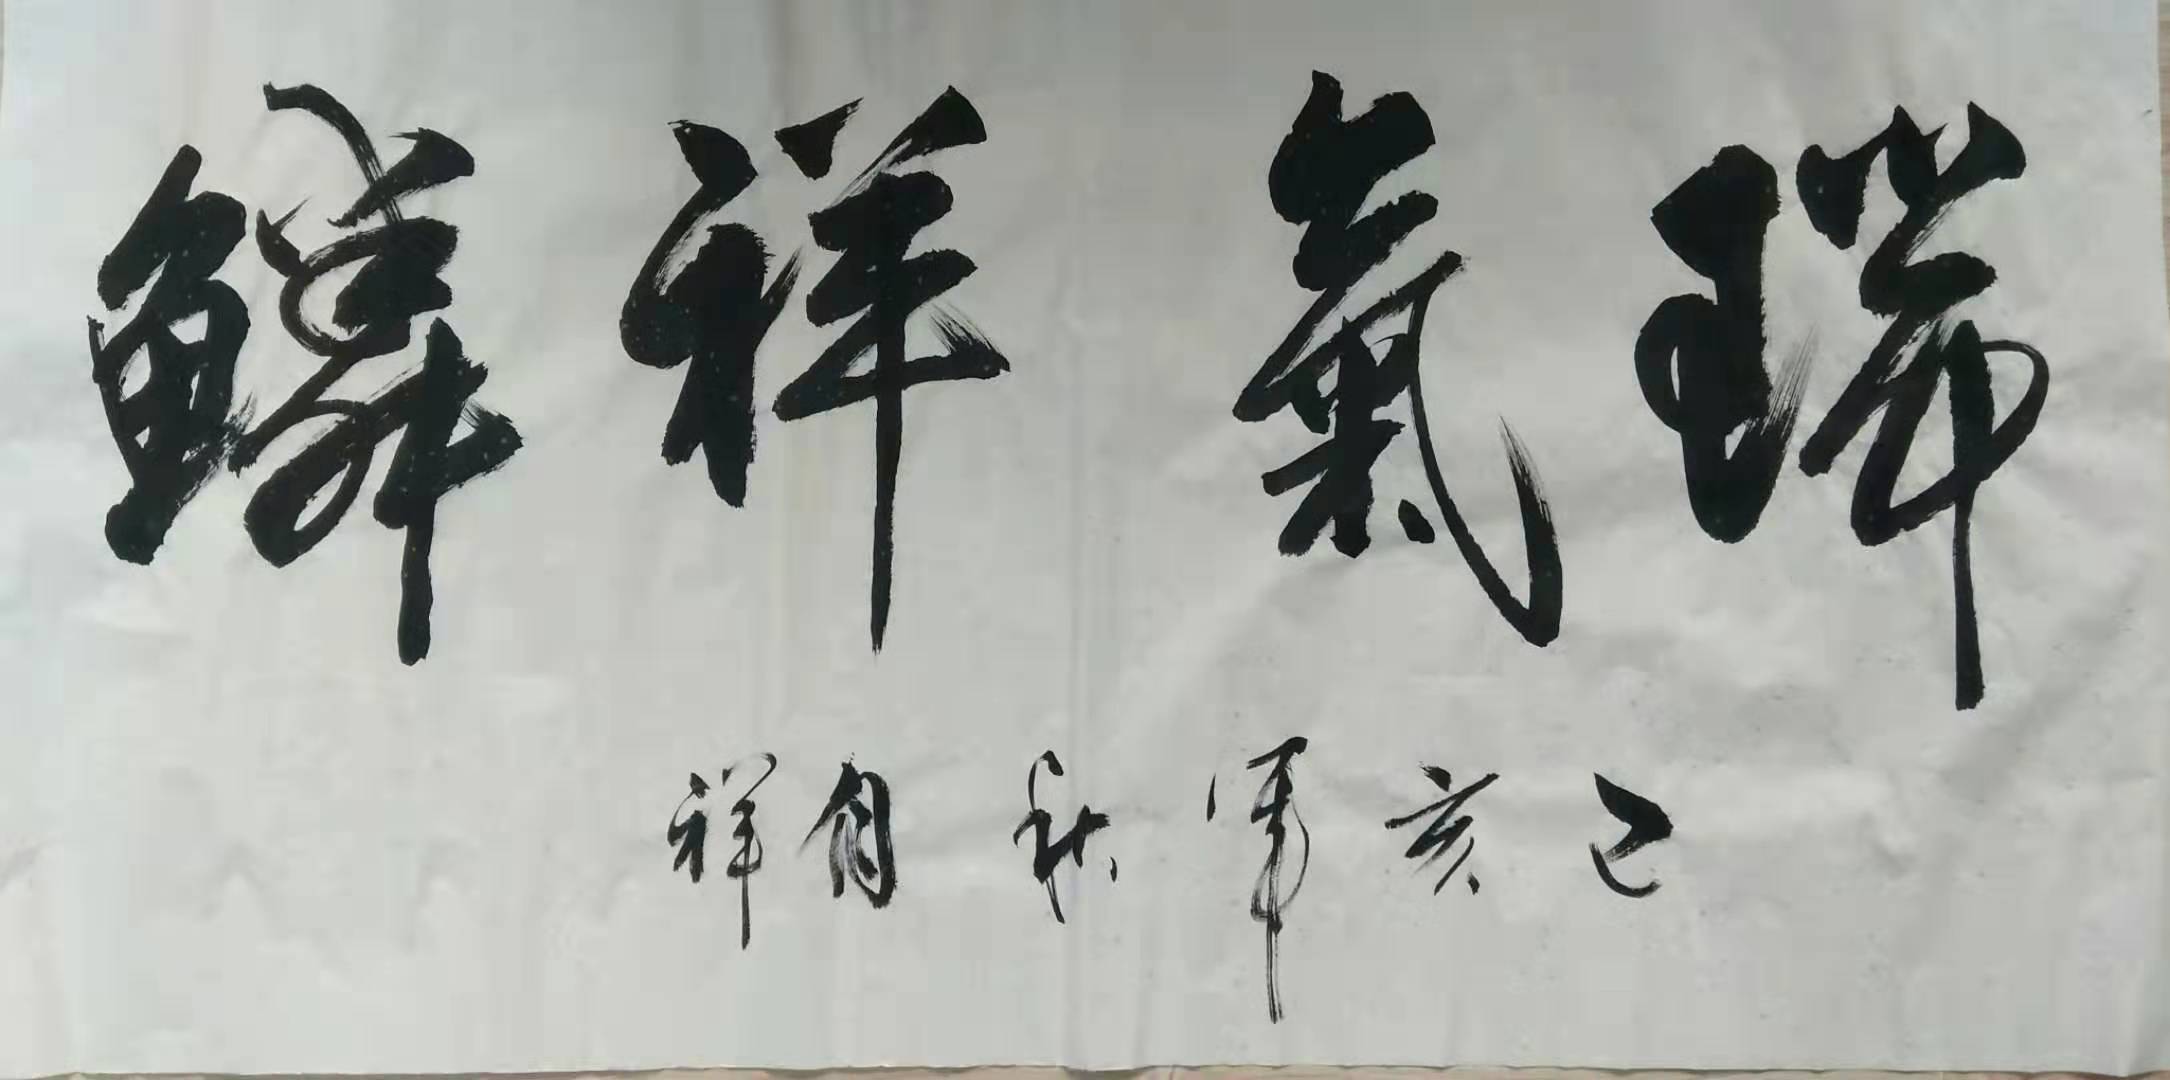 瑞氣祥鳞
己亥年秋月祥